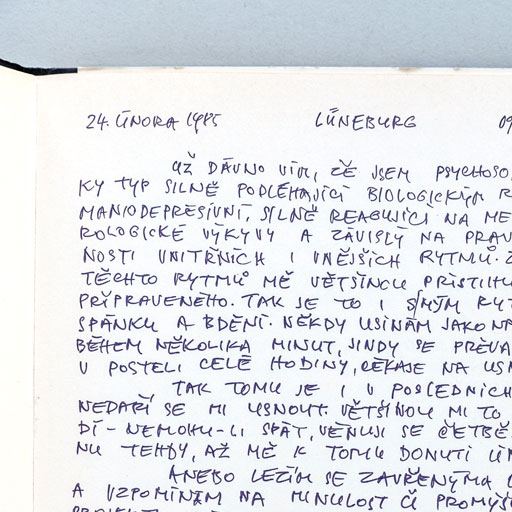 24. ÚNORA 1985 LÜNEBURG 09
UŽ DÁVNO VÍM, ŽE JSEM PSYCHOSO
KÝ TYP SILNĚ PODLÉHAJÍCÍ BIOLOGICKÝM R
MANIODEPRESIVNÍ, SILNĚ REAGUJÍCÍ NA ME
ROLOGICKÉ VÝKYVY A ZÁVISLÝ NA PRAV
NOSTI VNITŘNÍCH I VNĚJŠÍCH RYTMŮ. Z
TĚCHTO RYTMŮ MĚ VĚTŠINOU PŘISTIHU
PŘIPRAVENÉHO. TAK JE TO I S MÝM RYT
SPÁNKU A BDĚNÍ. NĚKDY USÍNÁM JAKO NA
BĚHEM NĚKOLIKA MINUT, JINDY SE PŘEVA
V POSTELI CELÉ HODINY, ČEKAJE NA USN
TAK TOMU JE I V POSLEDNÍCH
NEDAŘÍ SE MI USNOUT. VĚTŠINOU MI TO
DÍ - NEMOHU-LI SPÁT, VĚNUJI SE ČETBĚ
NU TEHDY, AŽ MĚ K TOMU DONUTÍ ÚN
ANEBO LEŽÍM SE ZAVŘENÝMA
A VZPOMÍNÁM NA MINULOST ČI PROMÝŠ